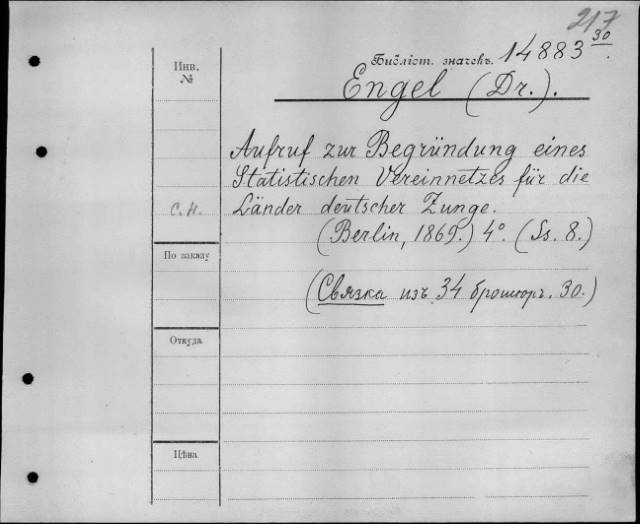 217
Инв.
№
Библіот. значекъ. 14883 30.
Engel (Dr.).
Aufruf zur Begründung eines
Statistischen Vereinnetzes für die
С. Н.
Länder deutscher Zunge.
(Berlin, 1869.) 4°. (Ss. 8.)
По заказу
(Связка изъ 34 брошюръ. 30.)
Откуда
Цѣна